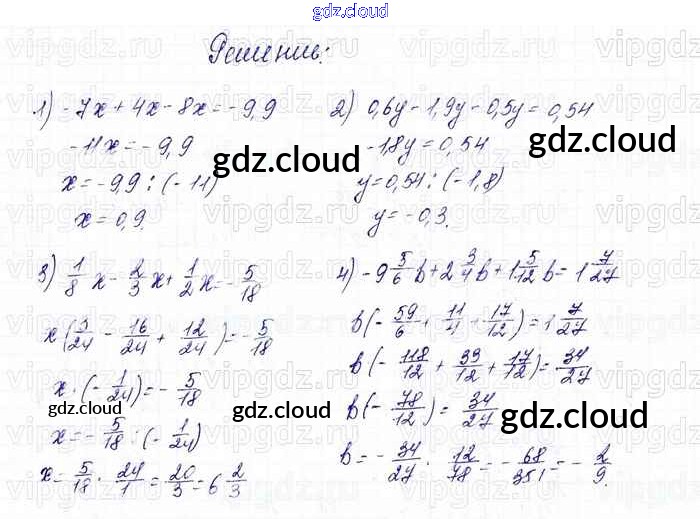 gdz.cloud
Решение:
1) -7x + 4x - 8x = -9,9
-11x = -9,9
x = -9,9 : (-11)
x = 0,9.
2) 0,6y - 1,9y - 0,5y = 0,54
-1,8y = 0,54
y = 0,54 : (-1,8)
y = -0,3.
gdz.cloud
gdz.cloud
3) 1/8 x - 2/3 x + 1/2 x = -5/18
x(3/24 - 16/24 + 12/24) = -5/18
x · (-1/24) = -5/18
x = -5/18 : (-1/24)
x = 5/18 · 24/1 = 20/3 = 6 2/3
4) -9 5/6 b + 2 3/4 b + 1 5/12 b = 1 7/27
b(-59/6 + 11/4 + 17/12) = 1 7/27
b(-118/12 + 33/12 + 17/12) = 34/27
b(-78/12) = 34/27
b = -34/27 · 12/78 = -68/351 = -2/9.
gdz.cloud
gdz.cloud
gdz.cloud
gdz.cloud
vipgdz.ru